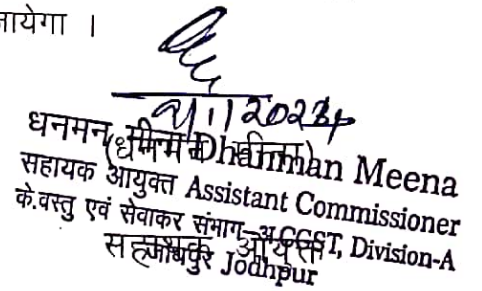 जायेगा ।
2024
(धनमन मीना)
धनमन मीना Dhanman Meena
सहायक आयुक्त Assistant Commissioner
के.वस्तु एवं सेवाकर संभाग-अ CGST, Division-A
सहायक आयुक्त
जोधपुर Jodhpur